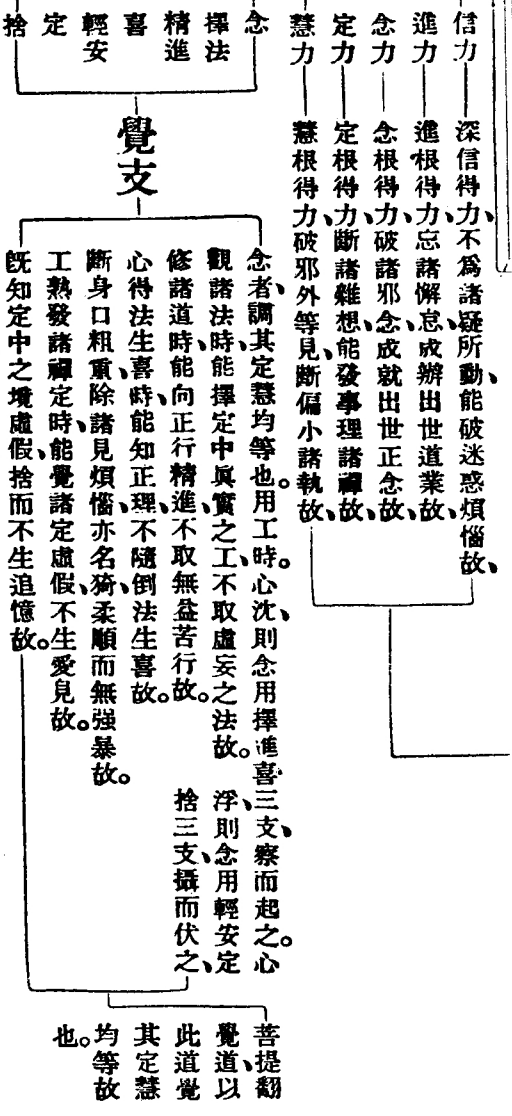 信力
進力
念力
定力
慧力
深信得力、不為諸疑所動、能破迷惑煩惱故、
進根得力、忘諸懈怠、成辦出世道業故、
念根得力、破諸邪念、成就出世正念故、
定根得力、斷諸雜想、能發事理諸禪故、
慧根得力、破邪外等見、斷偏小諸執故、
念
擇法
精進
喜
輕安
定
捨
覺支
念者、調其定慧均等也。用工時。心沈、則念用擇進喜三支、察而起之。心
浮、則念用輕安定
捨三支、攝而伏之、
觀諸法時、能擇定中眞實之工、不取虛妄之法故。
修諸道時、能向正行精進、不取無益苦行故。
心得法生喜時、能知正理、不隨倒法生喜故。
斷身口粗重、除諸見煩惱、亦名猗、柔順而無强暴故。
工熟發諸禪定時、能覺諸定虛假、不生愛見故。
旣知定中之境虛假、捨而不生追憶故。
菩提翻
覺道、以
此道覺
其定慧
均等故
也。